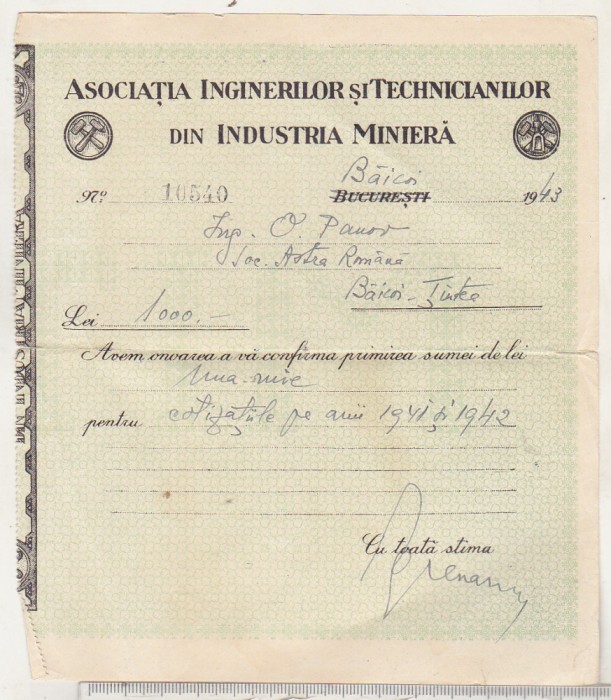 ASOCIAȚIA INGINERILOR ȘI TECHNICIANILOR
DIN INDUSTRIA MINIERĂ
Băicoi
Nº 10540 BUCUREȘTI 1943
Ing. O. Panov
Soc. Astra Română
Băicoi - Țintea
Lei 1000.-
Avem onoarea a vă confirma primirea sumei de lei
una mie
pentru cotizațiile pe anii 1941 și 1942
Cu toată stima